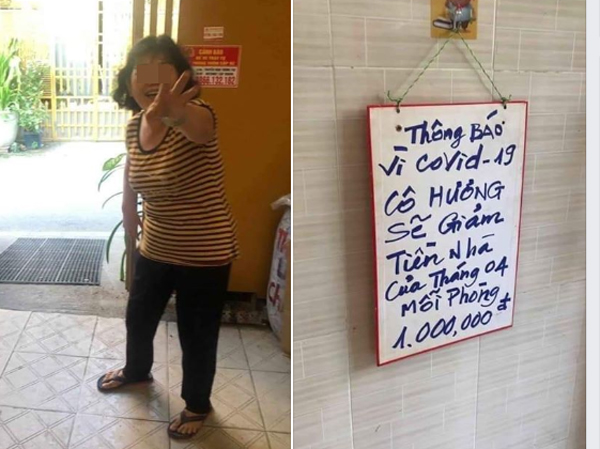 CẢNH BÁO
Thông BÁO
Vì COVid-19
CÔ HƯỞNG
SẼ Giảm
Tiền NHÀ
Của THáng 04
MỖi PHòng
1.000,000 đ